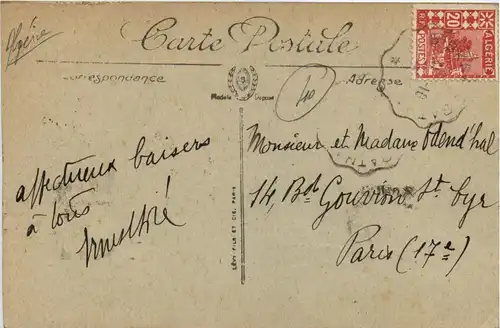 Algérie
Carte Postale
Correspondance
Adresse
20
ALGERIE
POSTES
40
affectueux baisers
à tous
Monsieur et Madame Odend'hal
14, Bd Gouvion St Cyr
Paris (17e)
LÉVY FILS ET CIE, PARIS